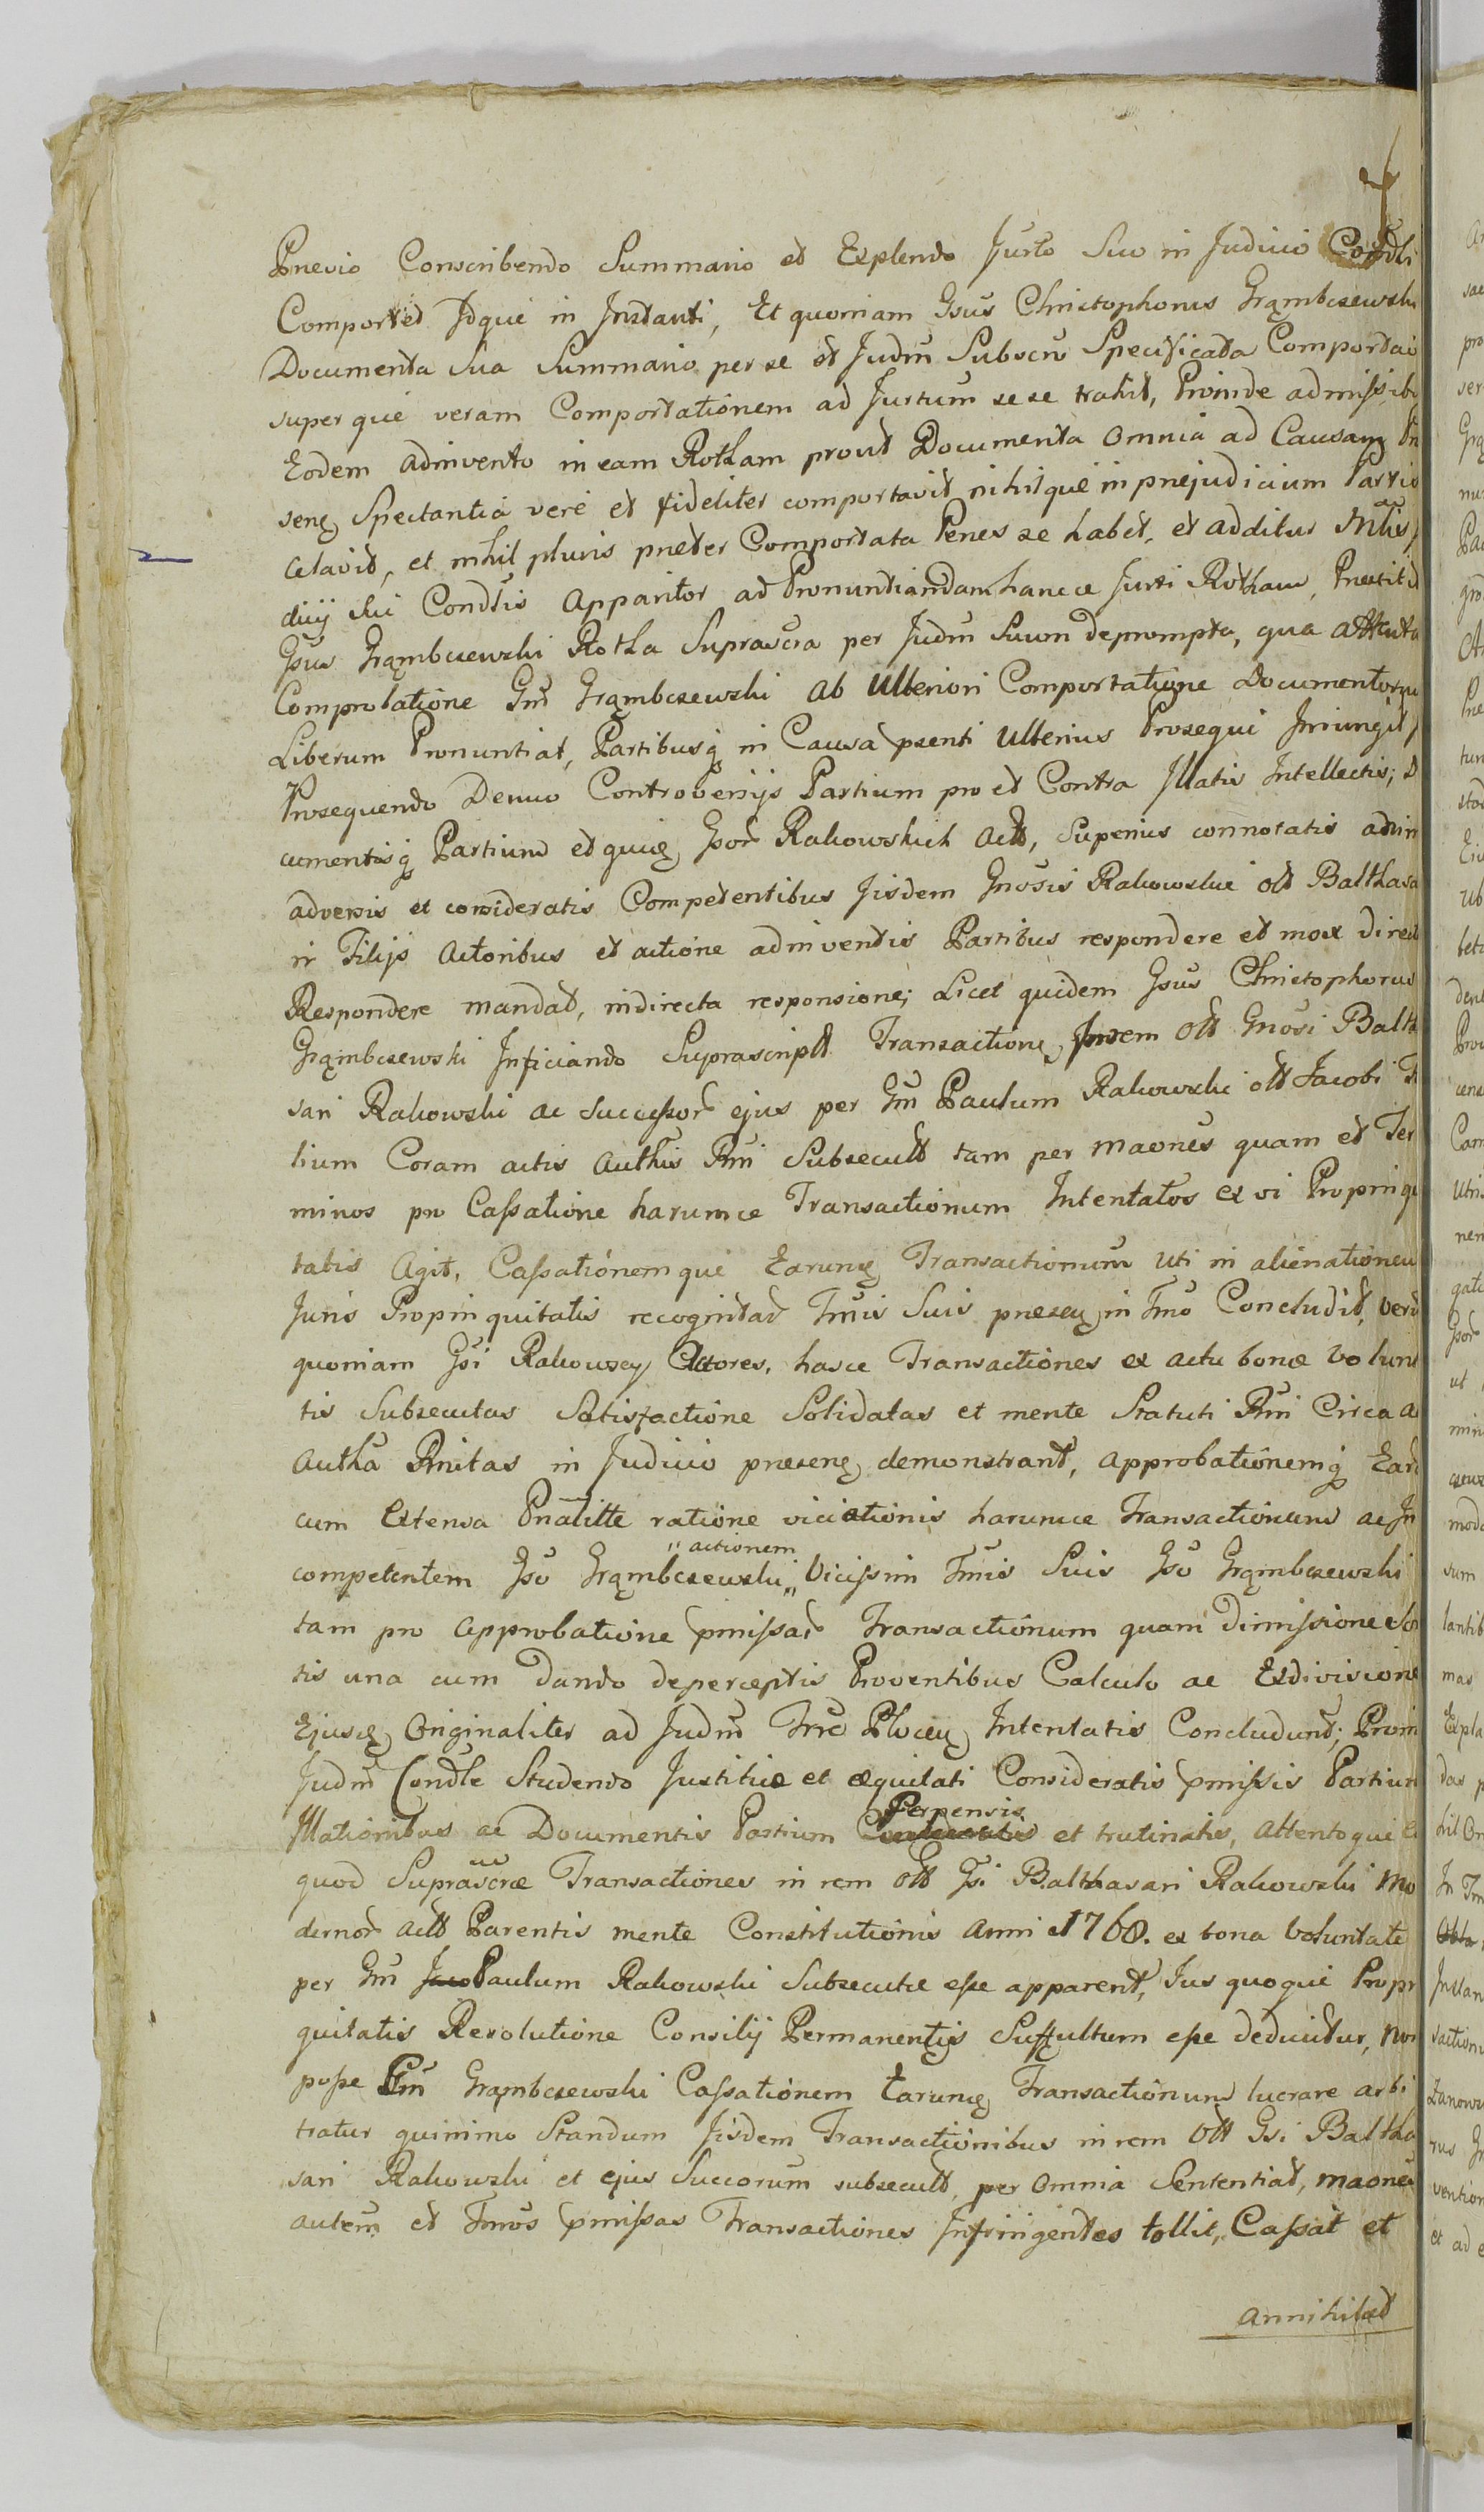 Prævio Conscribendo Summario et Explendo Jurto Suo in Judicio Condli
Comportet Idque in Instanti, Et quoniam Gsus Christophorus Grąmbczewski
Documenta Sua Summario per se et Judm Subscro Specificata Comportav
super que veram Comportationem ad Jurtum sese trahit, Proinde admissibi
Eodem adinvento in eam Rotham prout Documenta omnia ad Causam Præ
senę Spectantia veré et fideliter comportavit nihilque in præjudicium Partis
celavit, et nihil pluris præter Comportata Penes se habet, et additur Mlis
diij sui Condlis apparitor ad Pronuntiandam hancce Jurti Rotham, Præstitit
Gsus Grąmbczewski Rotha Suprascra per Judm Suum deprompta, qua attenta
Comprobatione Gm Grąmbczewski ab Ulteriori Comportatione Documentorum
Liberum Pronuntiat, Partibusq in Causa psenti Ulterius Prosequi Iniungit,
Prosequendo Denuo Controversijs Partium pro et Contra Illatis Intellectis; D
cumentisq Partium et quię Gsor Rakowskich Actt, Superius connotatis adin
adversis et consideratis Competentibus Iisdem Gnosis Rakowskie ott Balthasa
ri Filijs Actoribus et actione adinventis Partibus respondere et mox direct
Respondere mandat, indirecta responsione; Licet quidem Gsus Christophorus
Grąmbczewski Inficiando Suprascriptt Transactione, Inrem Ott Gnosi Balth
sari Rakowski ac successor ejus per Gm Paulum Rakowski ott Jacobi Fi
lium Coram actis Authis Rni Subsecutt tam per maones quam et Ter
minos pro Cassatione harumce Transactionum Intentatos ex vi Propinqu
tatis Agit, Cassationemque Earumę Transactionum uti in alienationem
Juris Propinquitatis recognitar Tmis Suis præseę in Tmo Concludit, Vero
quoniam Gsi Rakowscy Actores, hasce Transactiones ex actu bonæ Volunt
tis Subsecutas Satisfactione Solidatas et mente Statuti Rni Circa a
Autha Rnitas in Judicio præsenę demonstrant, approbationemq Ear
cum Extensa Pnalitte ratione viciationis harumce Transactionum ac In
competentem Gso Grąmbczewski "actionem Vicissim Tmis Suis Gso Grąmbczewski
tam pro Approbatione pmissar Transactionum quam dimissione Sor
tis una cum dando deperceptis Proventibus Calculo ac Exdivisione
Ejuscę Originaliter ad Judm Trre Plocen Intentatis Concludunt; Proin
Judm Condle Studendo Justitiæ et æquitati Consideratis pmissis Partium
Illationibus ac Documentis Partium Perpensis et trutinatis, attento que e
quod Suprascræ Transactiones in rem Ott Gsi Balthasari Rakowski Mo
dernor Actt Parentis mente Constitutionis Anni 1768. ex bona Voluntate
per Gm Paulum Rakowski Subsecutæ esse apparent, Jus quoque Propin
quitatis Resolutione Consilij Permanentis Suffultum esse deducitur, non
posse Gm Grąmbczewski Cassationem Earumę Transactionum lucrare arbi
tratur quinimo Standum Iisdem Transactionibus in rem Ott Gsi Baltha
sari Rakowski et ejus Succorum subsecutt, per Omnia Sententiat, maones
autem et Tmos pmissas Transactiones Infringentes tollit, Cassat et
annihilat